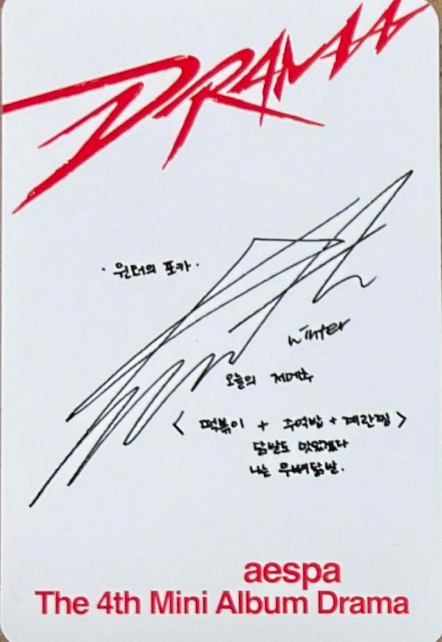 DRAMA
· 윈터의 포카 ·
winter
오늘의 저메추
< 떡볶이 + 주먹밥 + 계란찜 >
닭발도 맛있겠다
나는 무뼈닭발.
aespa
The 4th Mini Album Drama